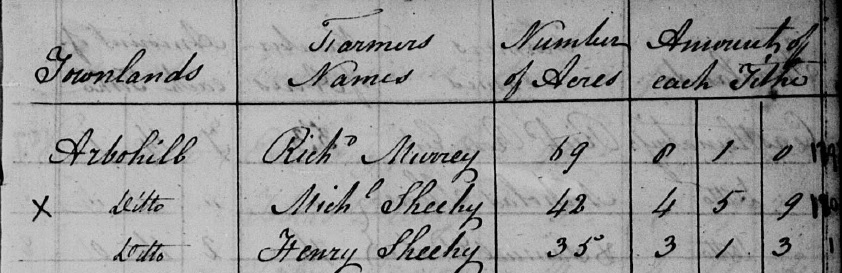 Townlands Farmers Names Number of Acres Amount of each Tithe
Arbohill Richd Murrey 69 8 1 0
x Ditto Michl Sheehy 42 4 5 9
Ditto Henry Sheehy 35 3 1 3